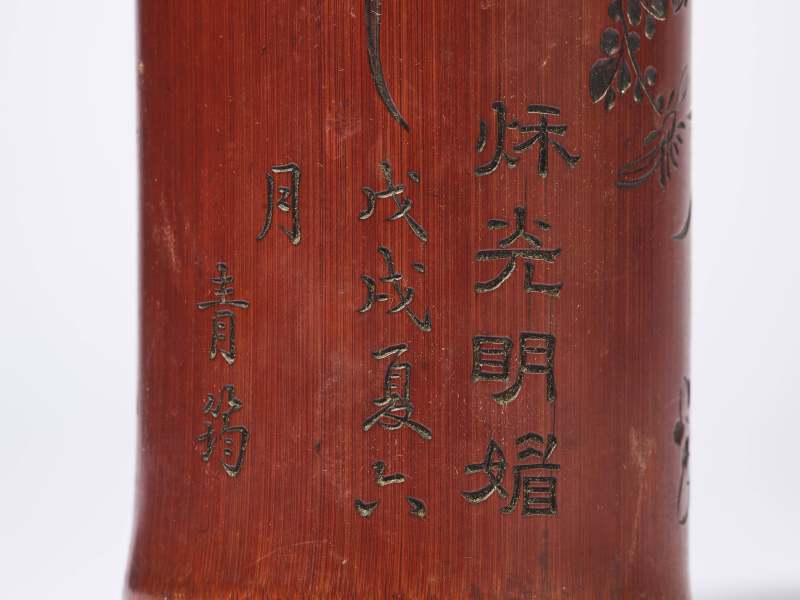 秌光明媚
戊戌夏六
月
青筠